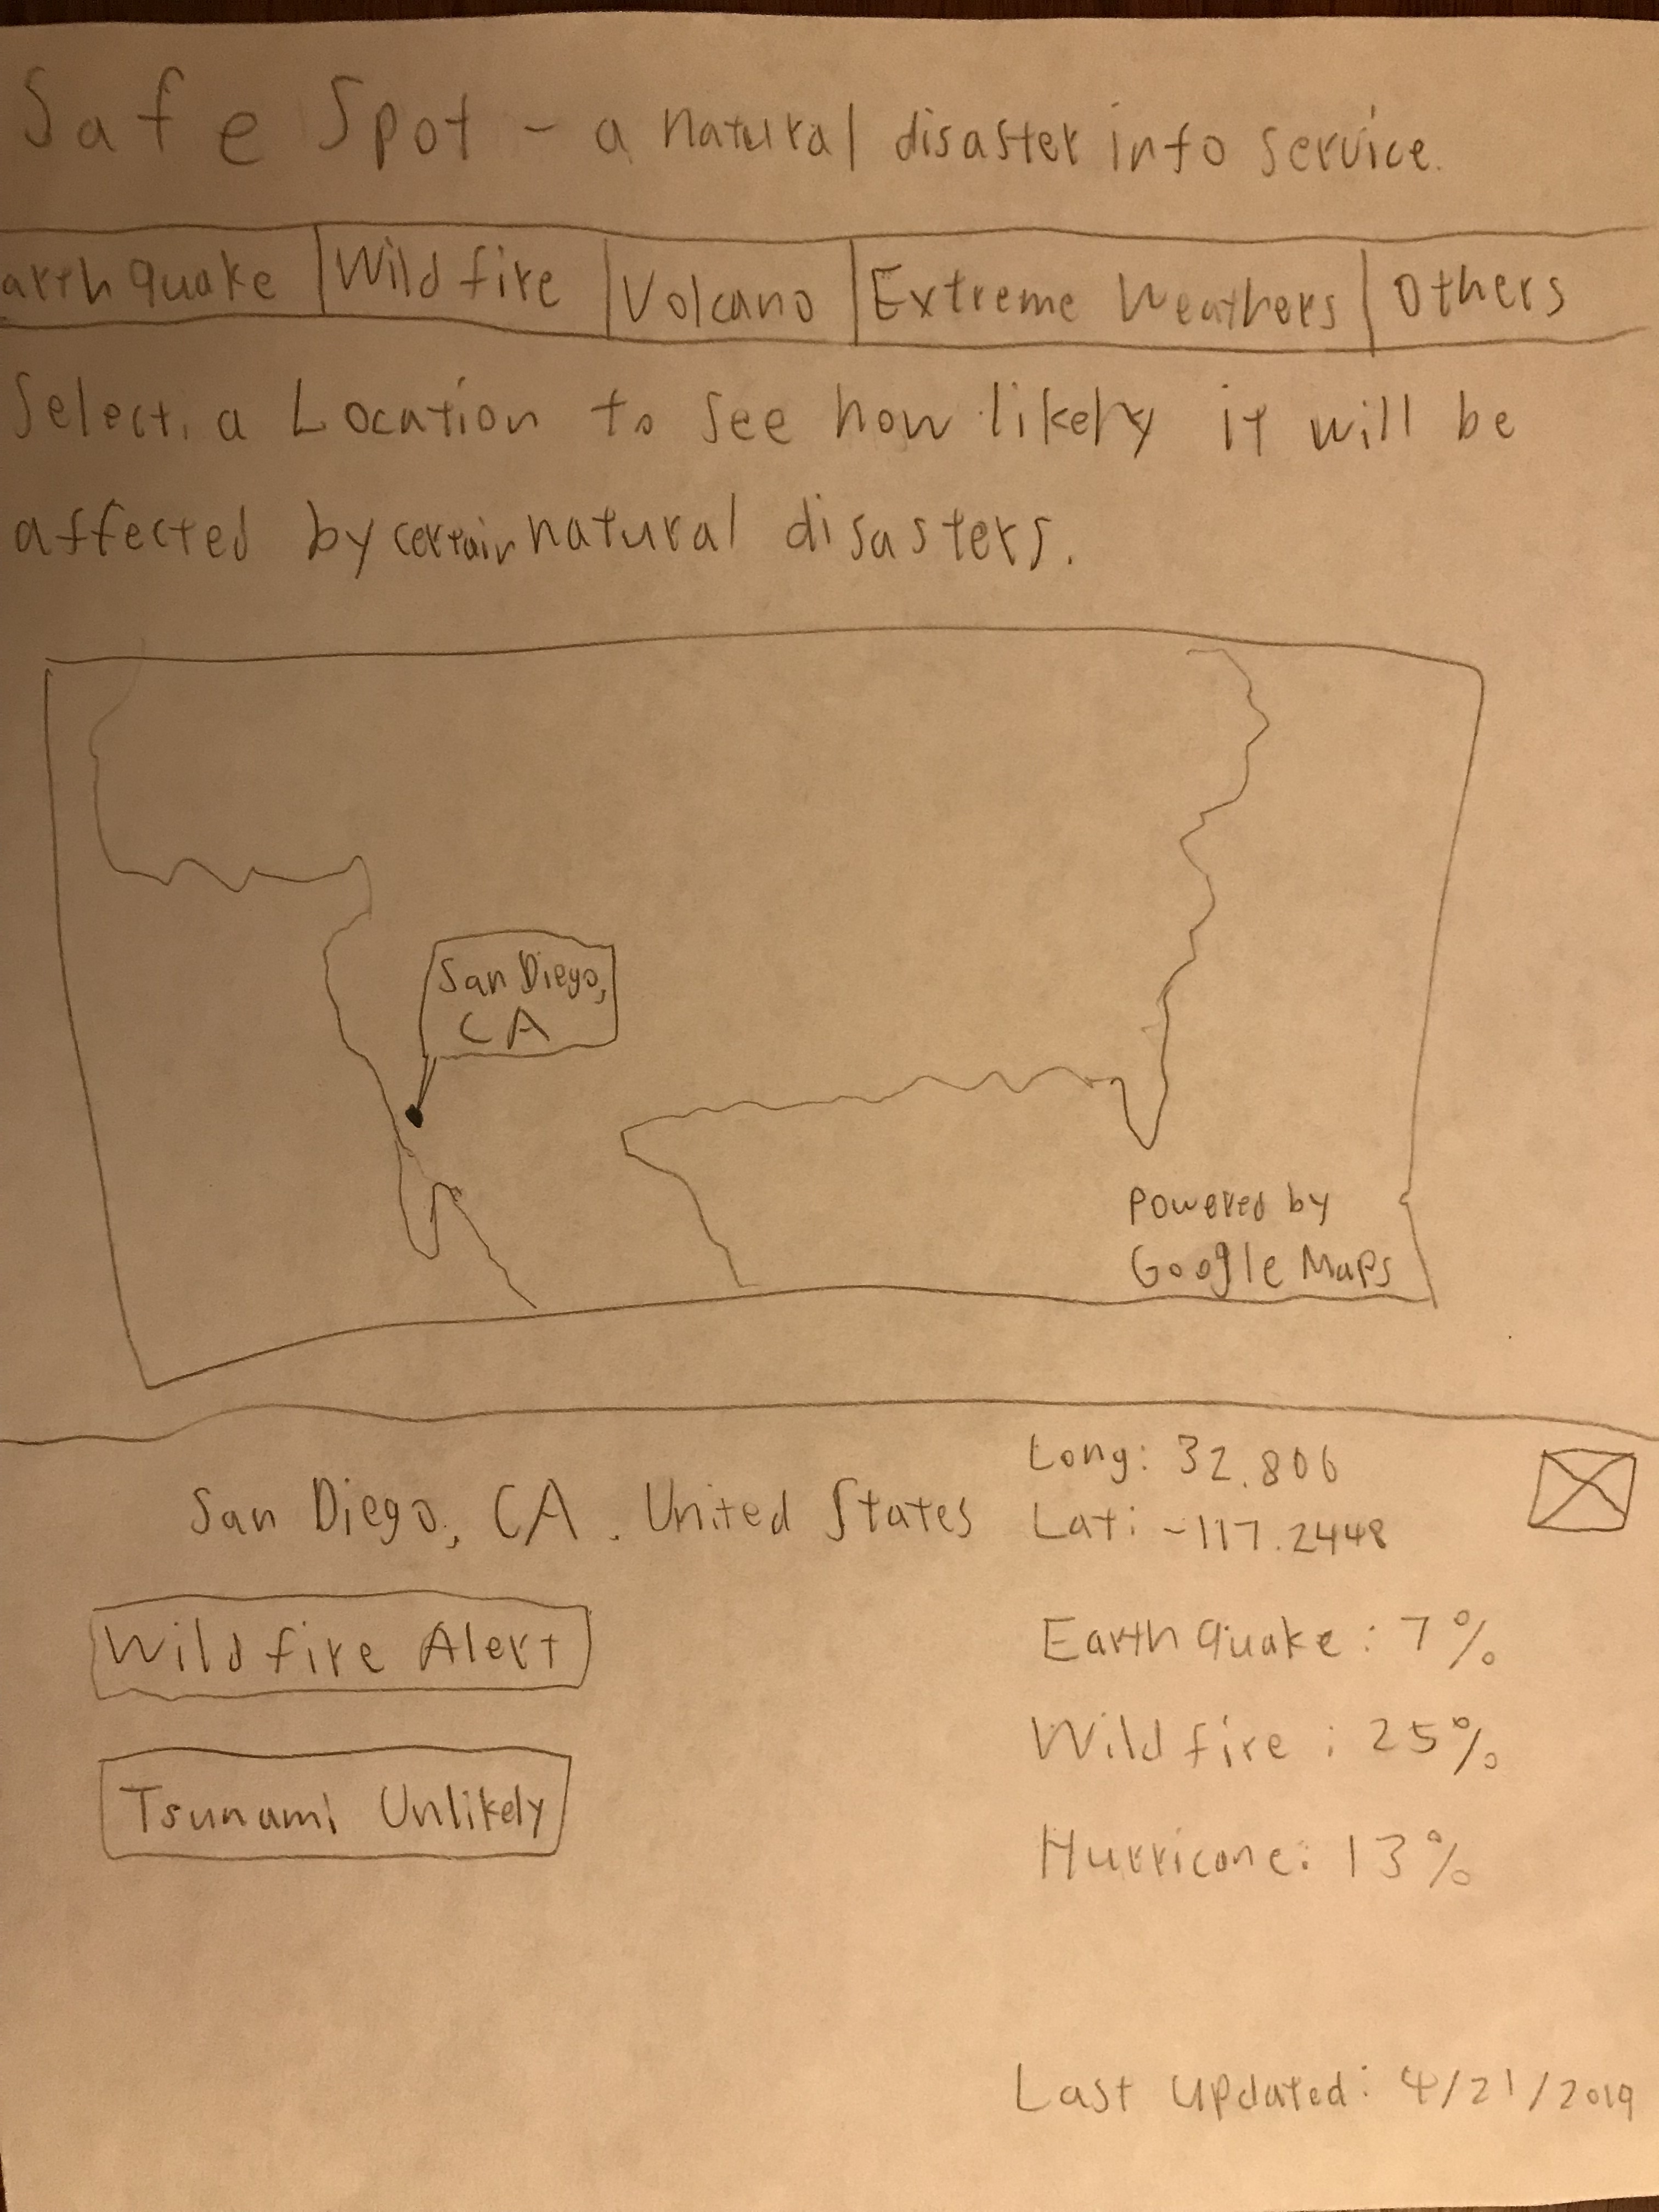 Safe Spot - a natural disaster info service.
arthquake | Wildfire | Volcano | Extreme Weathers | Others
Select a Location to see how likely it will be
affected by certain natural disasters.
San Diego,
CA
Powered by
Google Maps
San Diego, CA. United States
Long: 32.806
Lat: -117.2448
Wildfire Alert
Tsunami Unlikely
Earthquake: 7%
Wildfire: 25%
Hurricane: 13%
Last updated: 4/21/2019